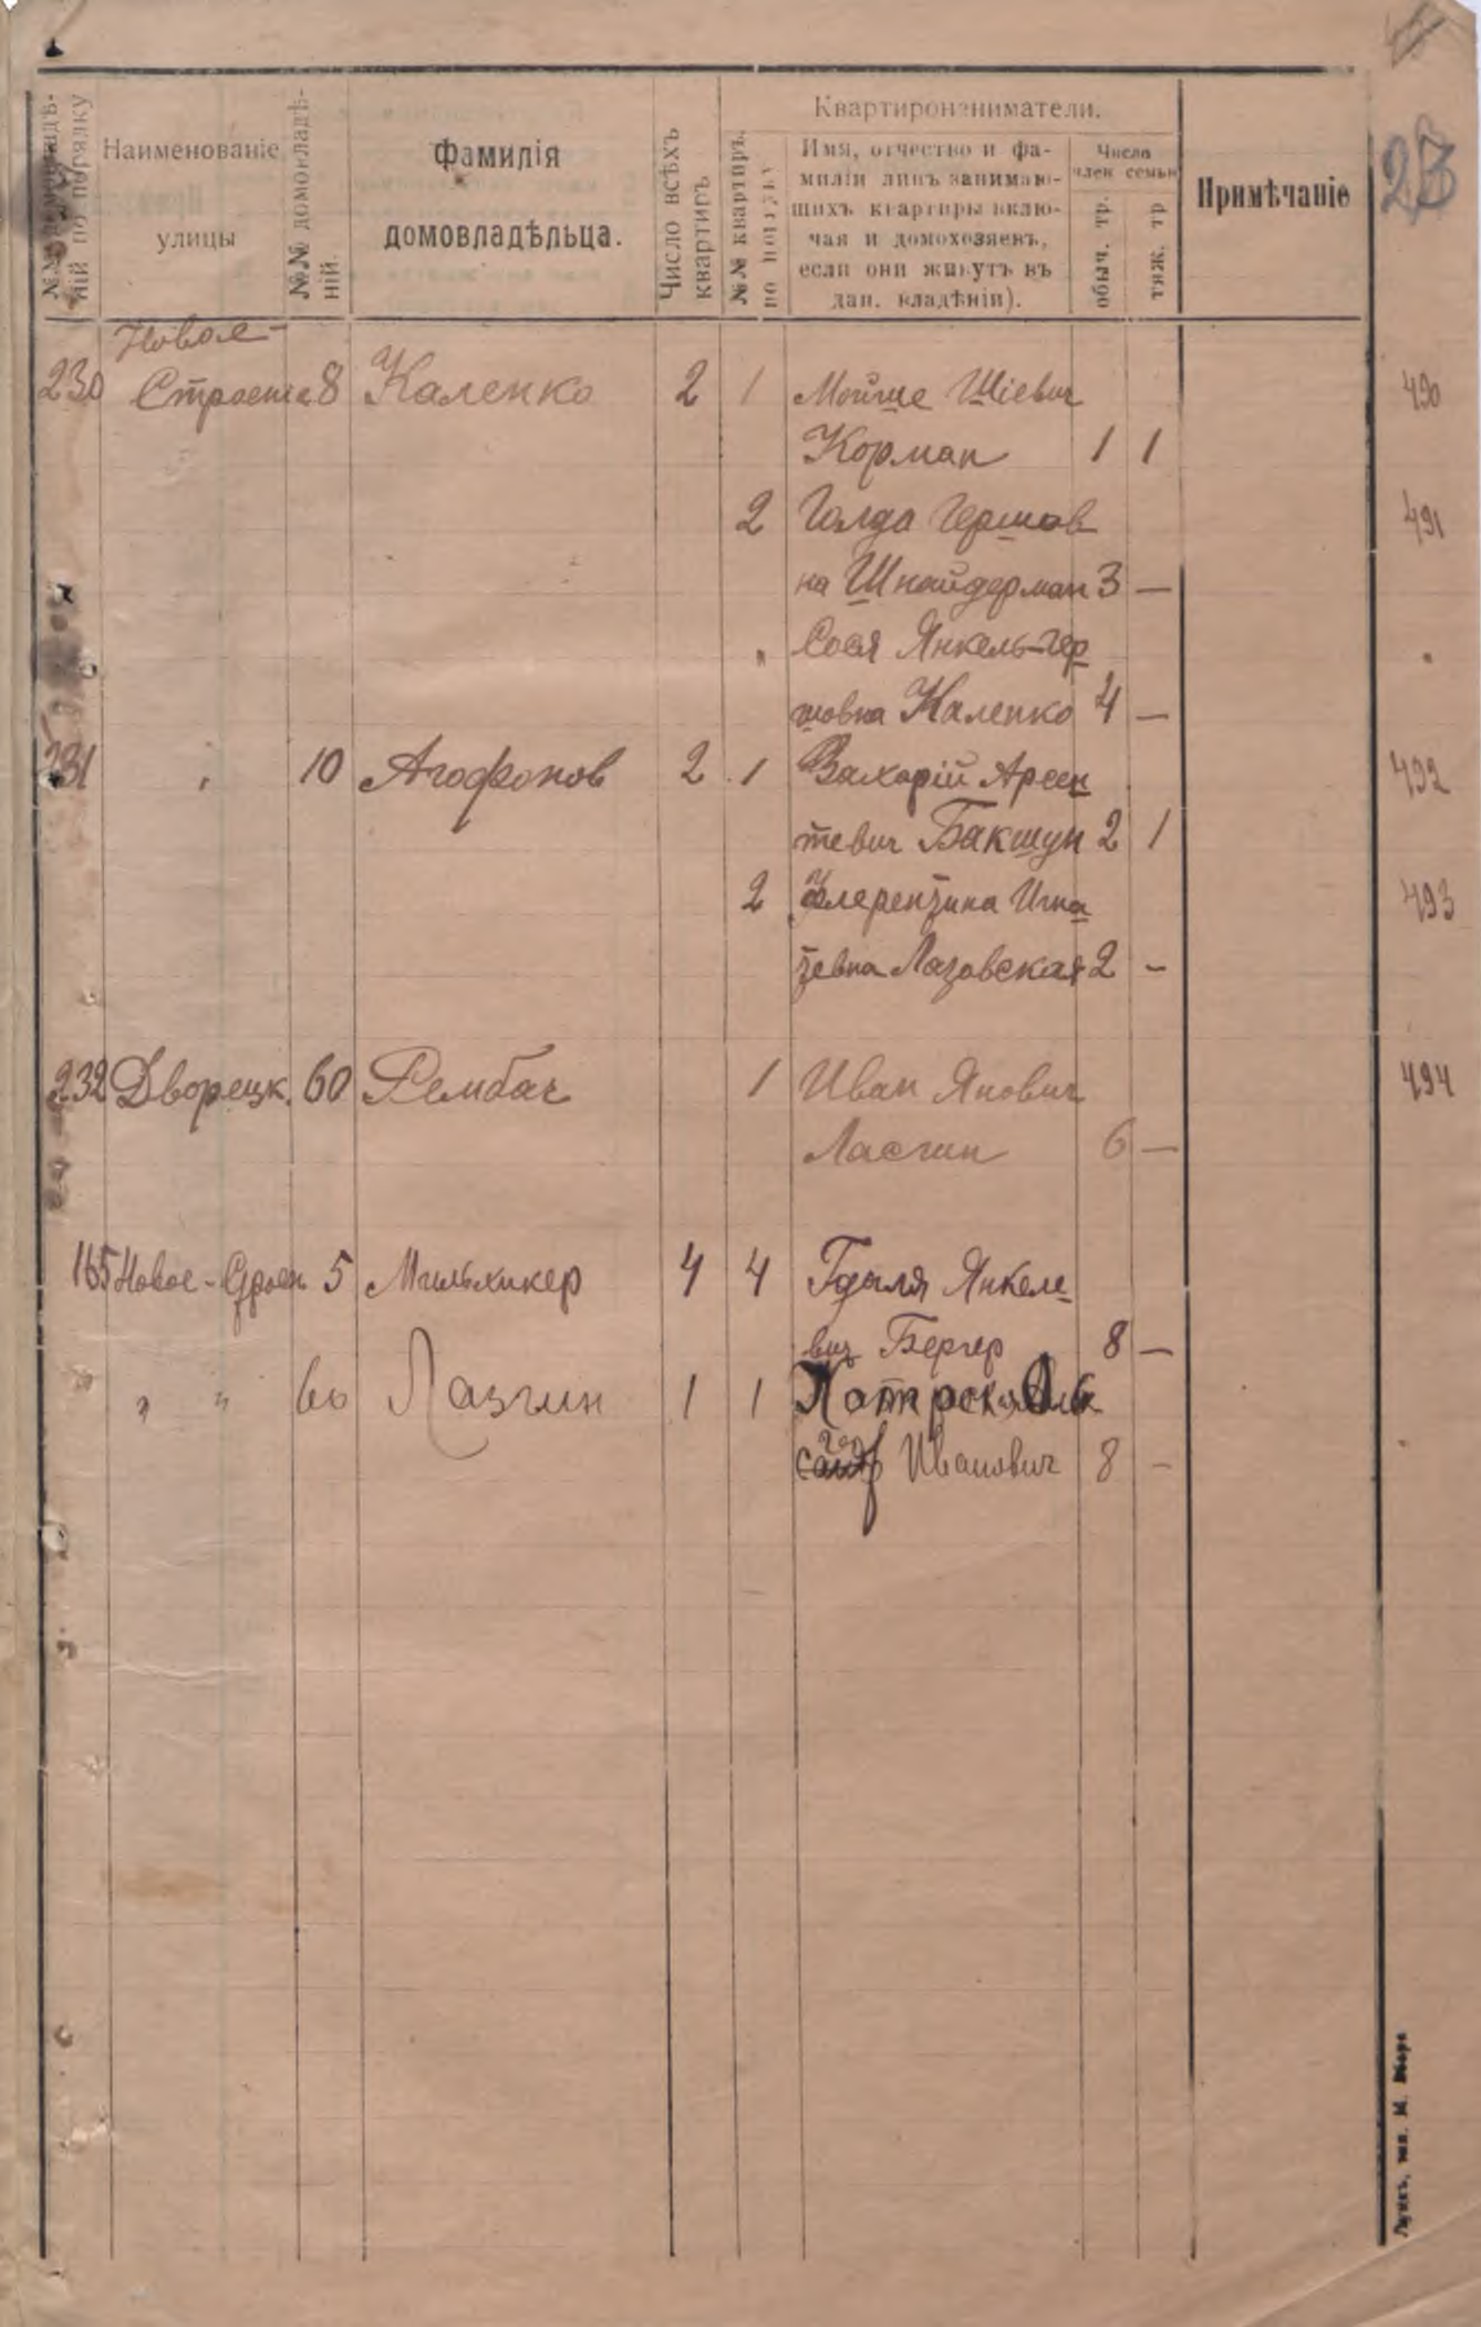 23
№№ домовладѣ-
ній по порядку
Наименованіе
улицы
№№ домовладѣ-
ній.
Фамилія
домовладѣльца.
Число всѣхъ
квартиръ
Квартиронаниматели.
№№ квартиръ
по порядку
Имя, отчество и фа-
миліи лицъ занимаю-
щихъ квартиры вклю-
чая и домохозяевъ,
если они живутъ въ
дан. владѣніи).
Число
член семьи
обыч. тр.
тяж. тр
Примѣчаніе
Новое-
230 Строение 8 Каленко 2 1 Мойше Шіевич 490
Корман 1 1
2 Голда Гершов 491
на Шнайдерман 3 —
" Сося Янкель-Гер
шовна Каленко 4 —
231 " 10 Агофонов 2 1 Захарій Арсен 492
тевич Бакшун 2 1
2 Флерентина Игна 493
тевна Лазовская 2 -
232 Дворецк. 60 Рембач 1 Иван Янович 494
Ласгин 6 —
165 Новое-Строен 5 Мильхикер 4 4 Гдаля Янкеле
вич Бергер 8 —
" " 60 Лазгин 1 1
Иванович 8 -
Луцкъ, тип. М.